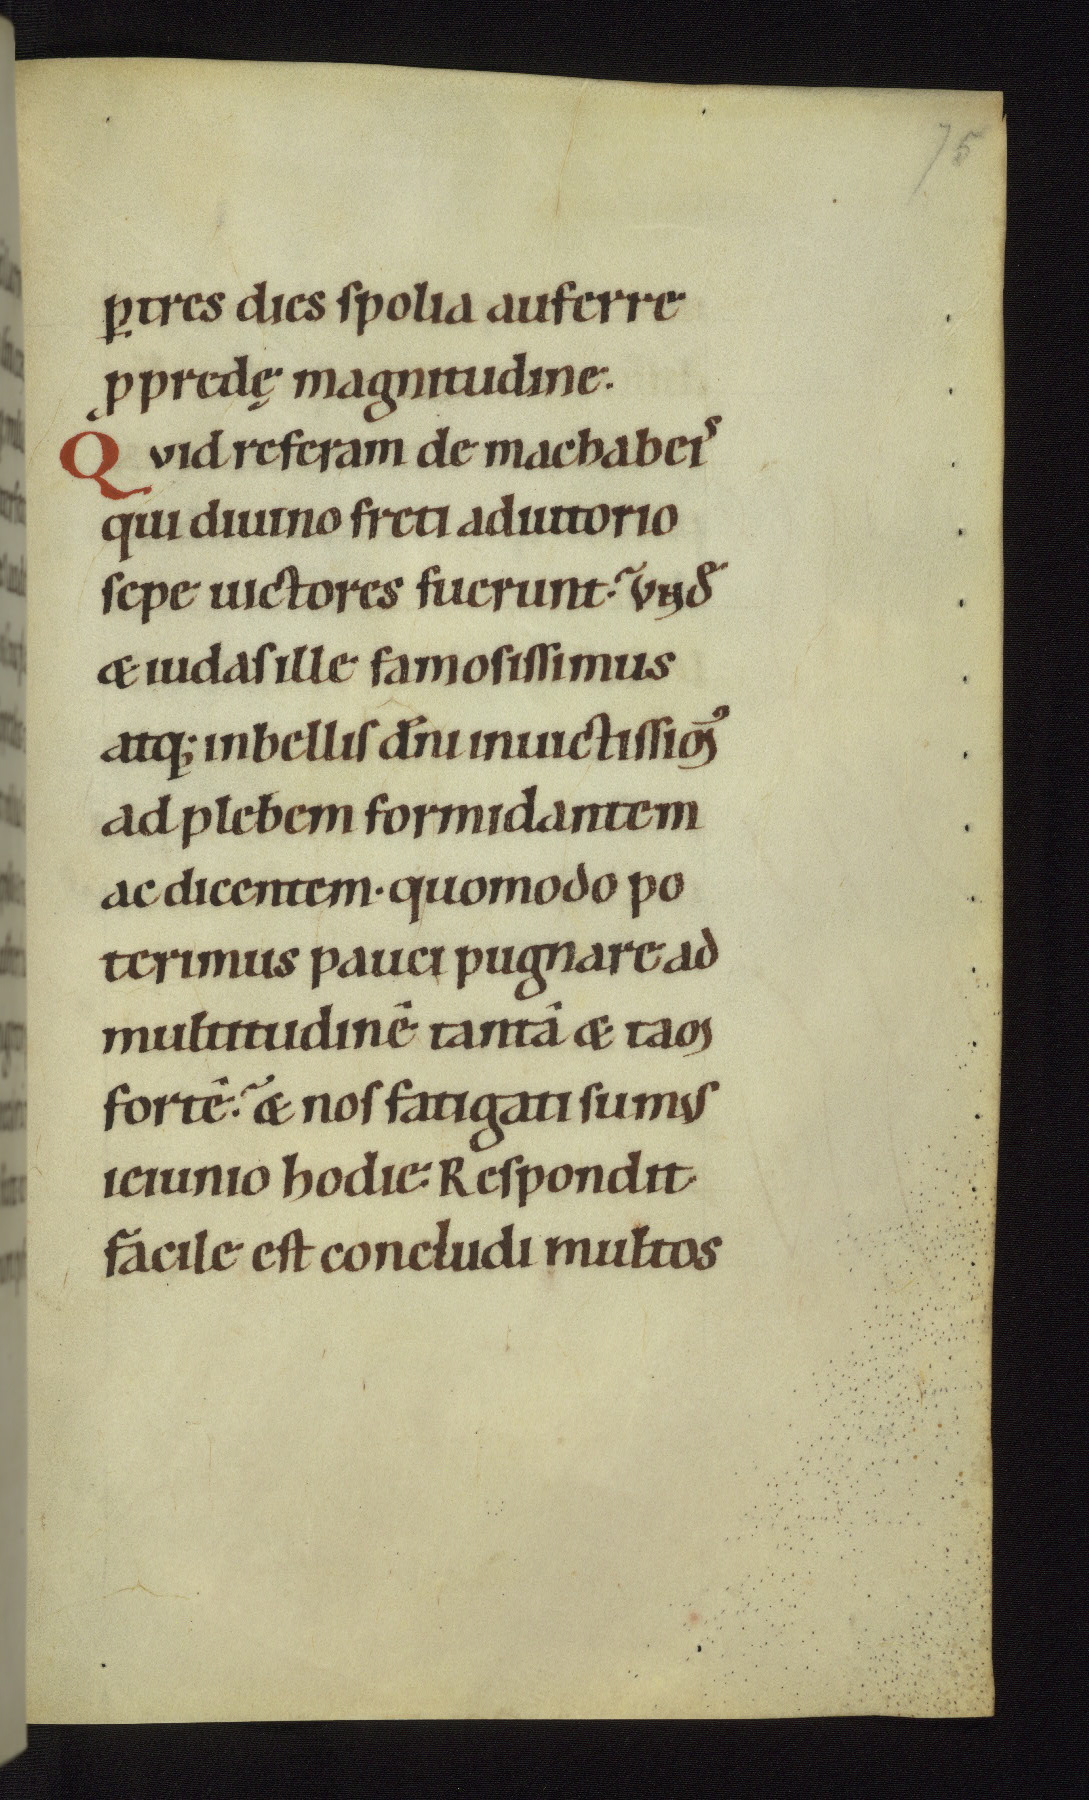 75
ꝑ tres dies ſpolia auferre
ꝓ predę magnitudine.
Qvid referam de machabeiſ
qui diuino freti adiutorio
ſepe uictores fuerunt. vnđ
& iudaſ ille famoſiſſimus
atq; in bellis dn̄i inuictiſſim᷒
ad plebem formidantem
ac dicentem. quomodo po
terimus pauci pugnare ad
multitudinē tantā & tam
fortē. & nos fatigati ſumus
ieiunio hodie. Reſpondit
facile eſt concludi multos